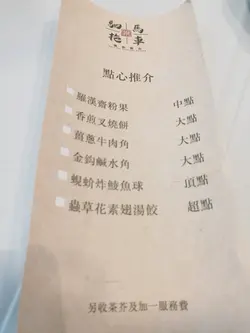 駟馬
拖車
點心推介
羅漢齋粉果 中點
香煎叉燒餅 大點
薑蔥牛肉角 大點
金鈎鹹水角 大點
蜆蚧炸鯪魚球 頂點
蟲草花素翅湯餃 超點
另收茶芥及加一服務費